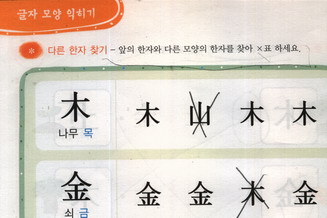 글자 모양 익히기
다른 한자 찾기 - 앞의 한자와 다른 모양의 한자를 찾아 ×표 하세요.
木 木 山 木 木
나무 목
金 金 金 木 金
쇠 금